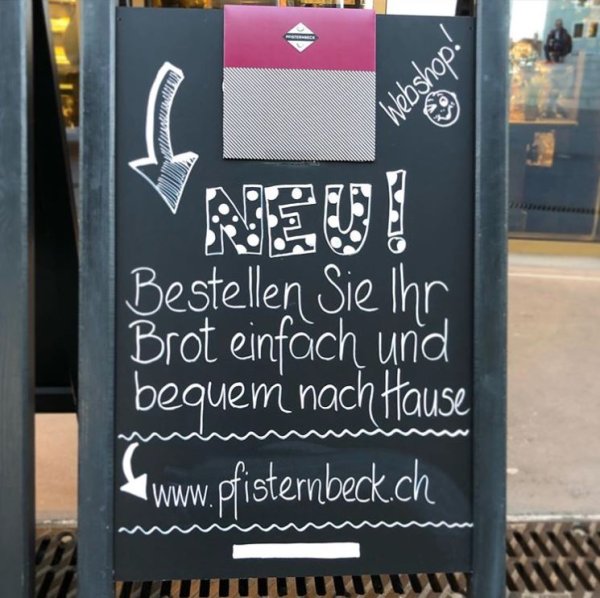 PFISTERNBECK
Webshop!
NEU!
Bestellen Sie Ihr
Brot einfach und
bequem nach Hause
www.pfisternbeck.ch